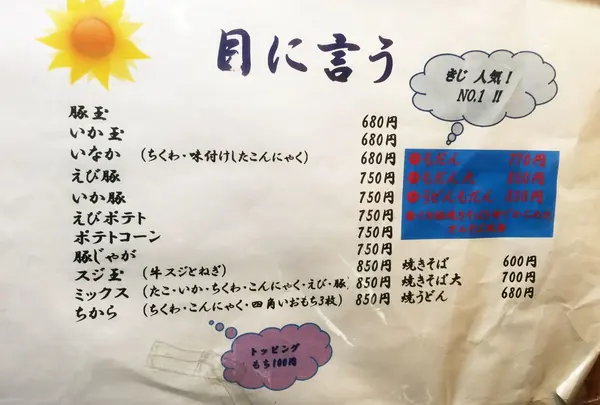 目に言う
きじ 人気！
NO.1 !!
豚玉 680円
いか玉 680円
いなか (ちくわ・味付けしたこんにゃく) 680円
えび豚 750円
いか豚 750円
えびポテト 750円
ポテトコーン 750円
豚じゃが 750円
スジ玉 (牛スジとねぎ) 850円
ミックス (たこ・いか・ちくわ・こんにゃく・えび・豚) 850円
ちから (ちくわ・こんにゃく・四角いおもち3枚) 850円
もだん 770円
もだん大
うどんもだん
焼きそば 600円
焼きそば大 700円
焼うどん 680円
トッピング
もち100円